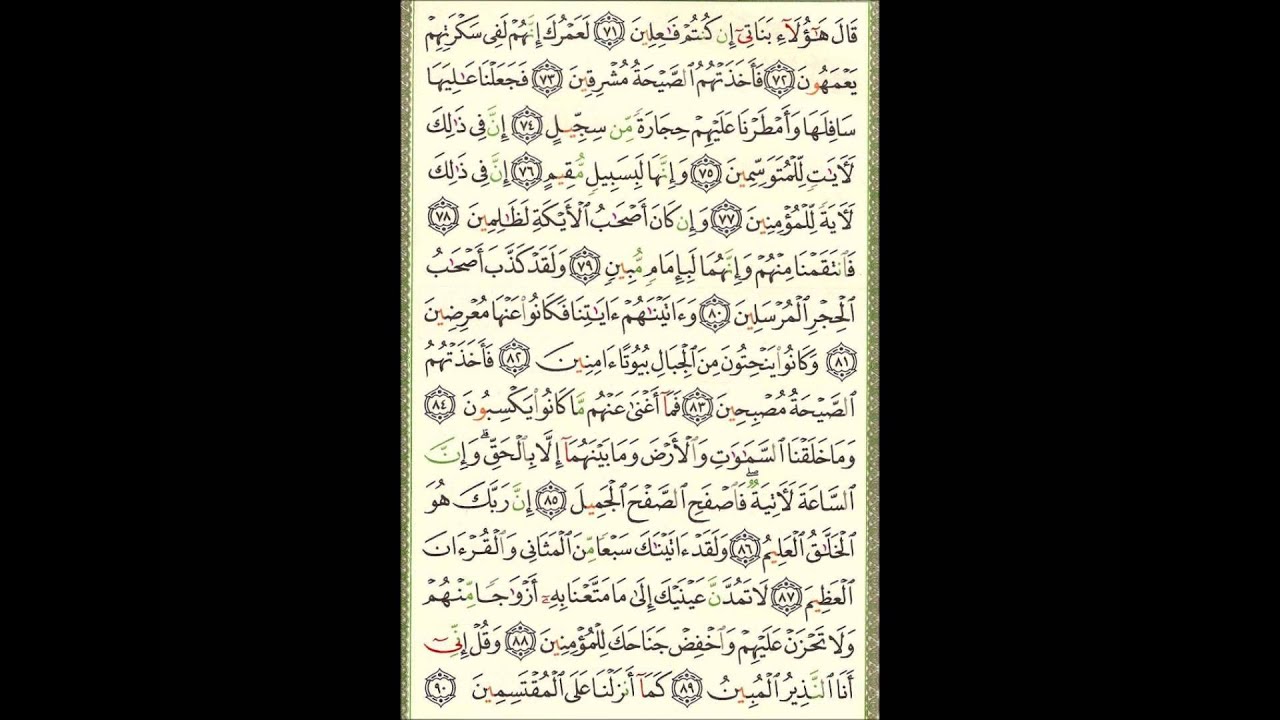 قَالَ هَـٰٓؤُلَآءِ بَنَاتِىٓ إِن كُنتُمْ فَـٰعِلِينَ ٧١ لَعَمْرُكَ إِنَّهُمْ لَفِى سَكْرَتِهِمْ
يَعْمَهُونَ ٧٢ فَأَخَذَتْهُمُ ٱلصَّيْحَةُ مُشْرِقِينَ ٧٣ فَجَعَلْنَا عَـٰلِيَهَا
سَافِلَهَا وَأَمْطَرْنَا عَلَيْهِمْ حِجَارَةً مِّن سِجِّيلٍ ٧٤ إِنَّ فِى ذَٰلِكَ
لَـَٔايَـٰتٍ لِّلْمُتَوَسِّمِينَ ٧٥ وَإِنَّهَا لَبِسَبِيلٍ مُّقِيمٍ ٧٦ إِنَّ فِى ذَٰلِكَ
لَـَٔايَةً لِّلْمُؤْمِنِينَ ٧٧ وَإِن كَانَ أَصْحَـٰبُ ٱلْأَيْكَةِ لَظَـٰلِمِينَ ٧٨
فَٱنتَقَمْنَا مِنْهُمْ وَإِنَّهُمَا لَبِإِمَامٍ مُّبِينٍ ٧٩ وَلَقَدْ كَذَّبَ أَصْحَـٰبُ
ٱلْحِجْرِ ٱلْمُرْسَلِينَ ٨٠ وَءَاتَيْنَـٰهُمْ ءَايَـٰتِنَا فَكَانُوا۟ عَنْهَا مُعْرِضِينَ
٨١ وَكَانُوا۟ يَنْحِتُونَ مِنَ ٱلْجِبَالِ بُيُوتًا ءَامِنِينَ ٨٢ فَأَخَذَتْهُمُ
ٱلصَّيْحَةُ مُصْبِحِينَ ٨٣ فَمَآ أَغْنَىٰ عَنْهُم مَّا كَانُوا۟ يَكْسِبُونَ ٨٤
وَمَا خَلَقْنَا ٱلسَّمَـٰوَٰتِ وَٱلْأَرْضَ وَمَا بَيْنَهُمَآ إِلَّا بِٱلْحَقِّ ۗ وَإِنَّ
ٱلسَّاعَةَ لَـَٔاتِيَةٌ ۖ فَٱصْفَحِ ٱلصَّفْحَ ٱلْجَمِيلَ ٨٥ إِنَّ رَبَّكَ هُوَ
ٱلْخَلَّـٰقُ ٱلْعَلِيمُ ٨٦ وَلَقَدْ ءَاتَيْنَـٰكَ سَبْعًا مِّنَ ٱلْمَثَانِى وَٱلْقُرْءَانَ
ٱلْعَظِيمَ ٨٧ لَا تَمُدَّنَّ عَيْنَيْكَ إِلَىٰ مَا مَتَّعْنَا بِهِۦٓ أَزْوَٰجًا مِّنْهُمْ
وَلَا تَحْزَنْ عَلَيْهِمْ وَٱخْفِضْ جَنَاحَكَ لِلْمُؤْمِنِينَ ٨٨ وَقُلْ إِنِّىٓ
أَنَا ٱلنَّذِيرُ ٱلْمُبِينُ ٨٩ كَمَآ أَنزَلْنَا عَلَى ٱلْمُقْتَسِمِينَ ٩٠